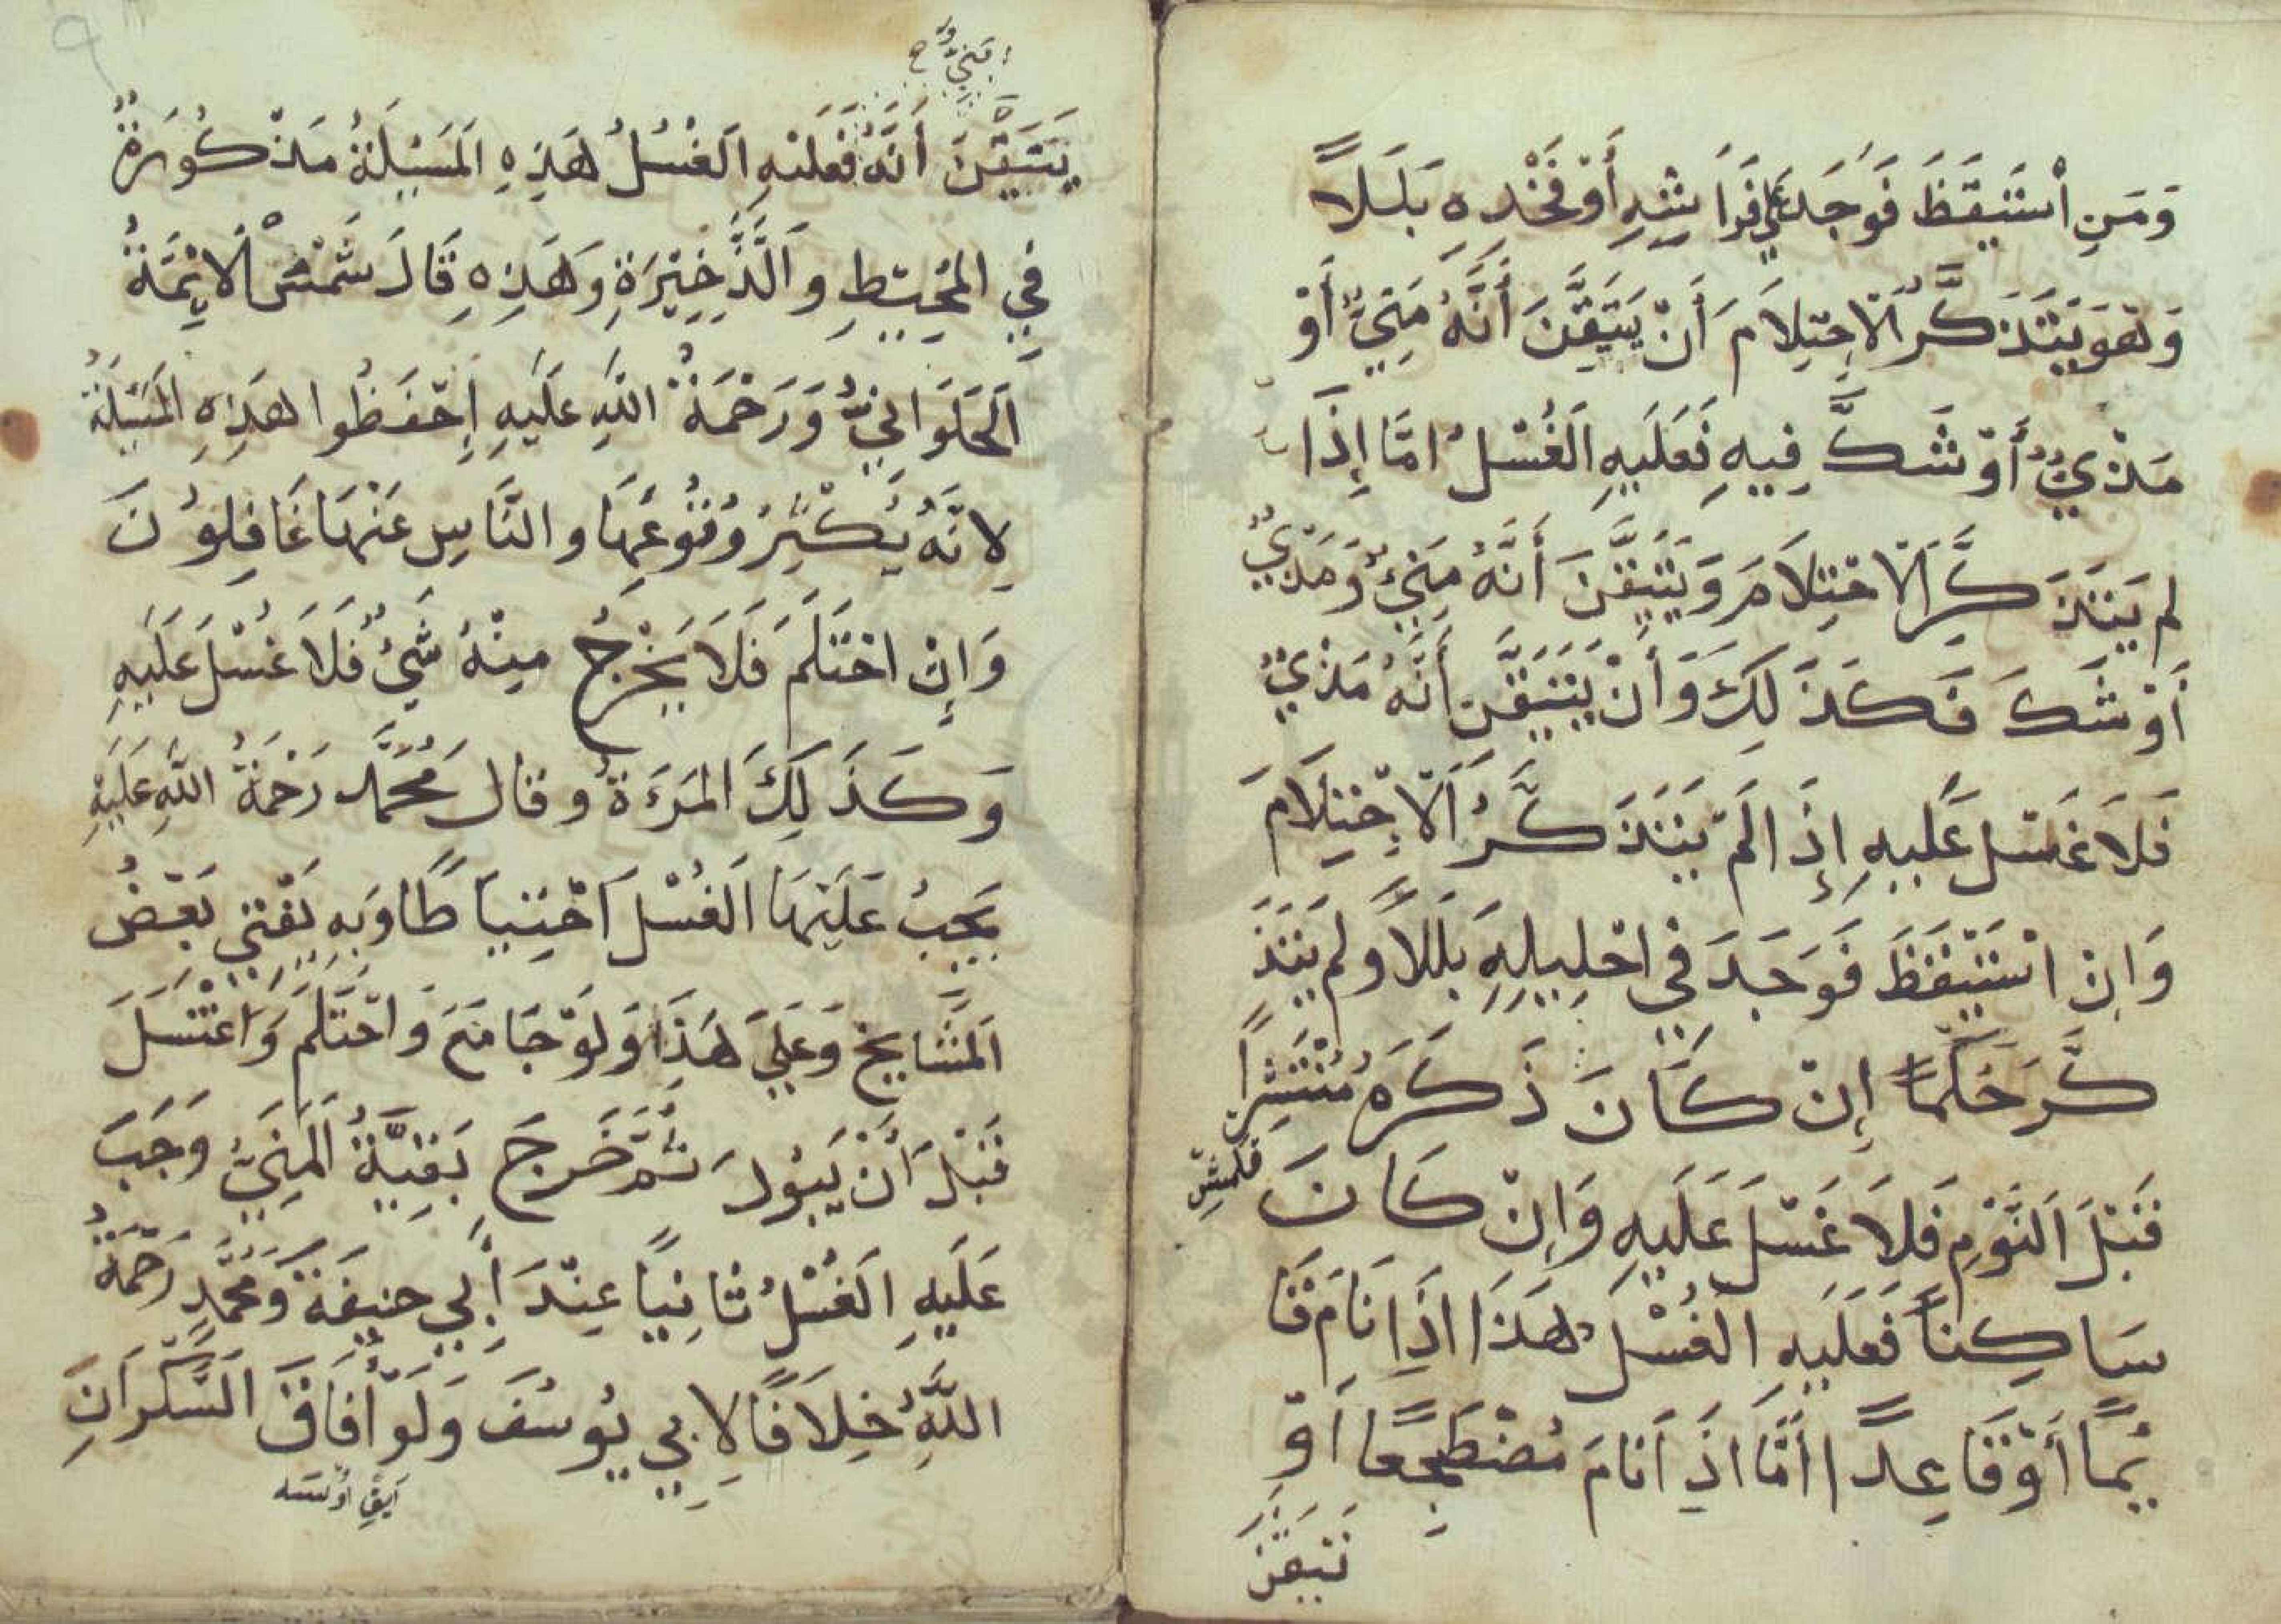 وَمَنِ اسْتَيْقَظَ فَوَجَدَ عَلَي فِرَاشِهِ أَوْ فَخْذِهِ بَلَلًا
وَهُوَ يَتَذَكَّرُ الْاِحْتِلَامَ أَنْ يَتَيَقَّنَ أَنَّهُ مَنِيٌّ أَوْ
مَذْيٌ أَوْ شَكَّ فِيهِ فَعَلَيْهِ الْغُسْلُ امَّا إِذَا
لم يَتَذَكَّرِ الْاحْتِلَامَ وَيَتَيَقَّنَ أَنَّهُ مَنِيٌّ وَمَذْيٌ
أَوْ شَكَ فَكَذَلِكَ وَأَنْ يَتَيَقَّنَ أَنَّهُ مَذْيٌ
فَلَا غَسْلَ عَلَيهِ إِذَا لَمْ يَتَذَكَّرُ الْاِحْتِلَامَ
وَاِنْ اسْتَيْقَظَ فَوَجَدَ فِي احْلِيلِهِ بَلَلًا وَلم يَتَذَ
كَّرَ حُلُمًا إِنْ كَانَ ذَكَرَهُ مُنْتَشِرًا
قَبْلَ النَّوْمِ فَلَا غَسْلَ عَلَيهِ وَاِنْ كَانَ
سَاكِنًا فَعَلَيهِ الْغُسْلَ هَذَا اِذَا نَامَ قَا
ئِمًا أَوْ قَاعِدًا أَمَّا اذِا نَامَ مُضْطَجِعًا اَوْ
تَيَقَّنَ
يَتَيَقَّنَ أَنَّهُ فَعَلَيْهِ الْغُسْلُ هَذِهِ الْمَسْئَلَةُ مَذْكُورَةٌ
فِي الْمُحِيطِ وَالذَّخِيرَةِ وَهَذِهِ قَالَ شَمْسُ الْاَئِمَّةُ
الْحَلَوَانِيُّ وَرَحْمَةُ اللهِ عَلَيهِ اِحْفَظُوا هَذِهِ الْمَسْئَلَةُ
لِانَّهُ يَكْثِيرُ وُقُوعُهَا وَالنَّاسِ عَنْهَا غَافِلُونَ
وَاِنْ احْتَلَمَ فَلَا يَخْرُجُ مِنْهُ شَيْءٌ فَلَا غُسْلَ عَلَيهِ
وَكَذَلِكَ الْمَرْءَةُ وَقَالَ مُحَمَّد رَحْمَةُ اللهِ عَلَيْهِ
يَجِبُ عَلَيْهَا الْغُسْلَ احْتِيَاطًا وَبِهِ يَفْتِي بَعْضُ
الْمَشَايِخِ وَعَلَيَ هَذَا وَلَوْ جَامَعَ وَاحْتَلَمَ وَاغْتَسَلَ
قَبْلَ اَنْ يَبُولَ ثُمَّ خَرَجَ بَقِيَّةُ الْمَنِيِّ وَجَبَ
عَلَيهِ الْغُسْلُ ثَانِيًا عِنْدَ أَبِي حنِيفَةَ وَمُحَمَّدٍ رَحْمَةُ
اللهِ خِلَافًا لِابِي يُوسُفَ وَلَوْ أَفَاقَ السَّكْرَانِ